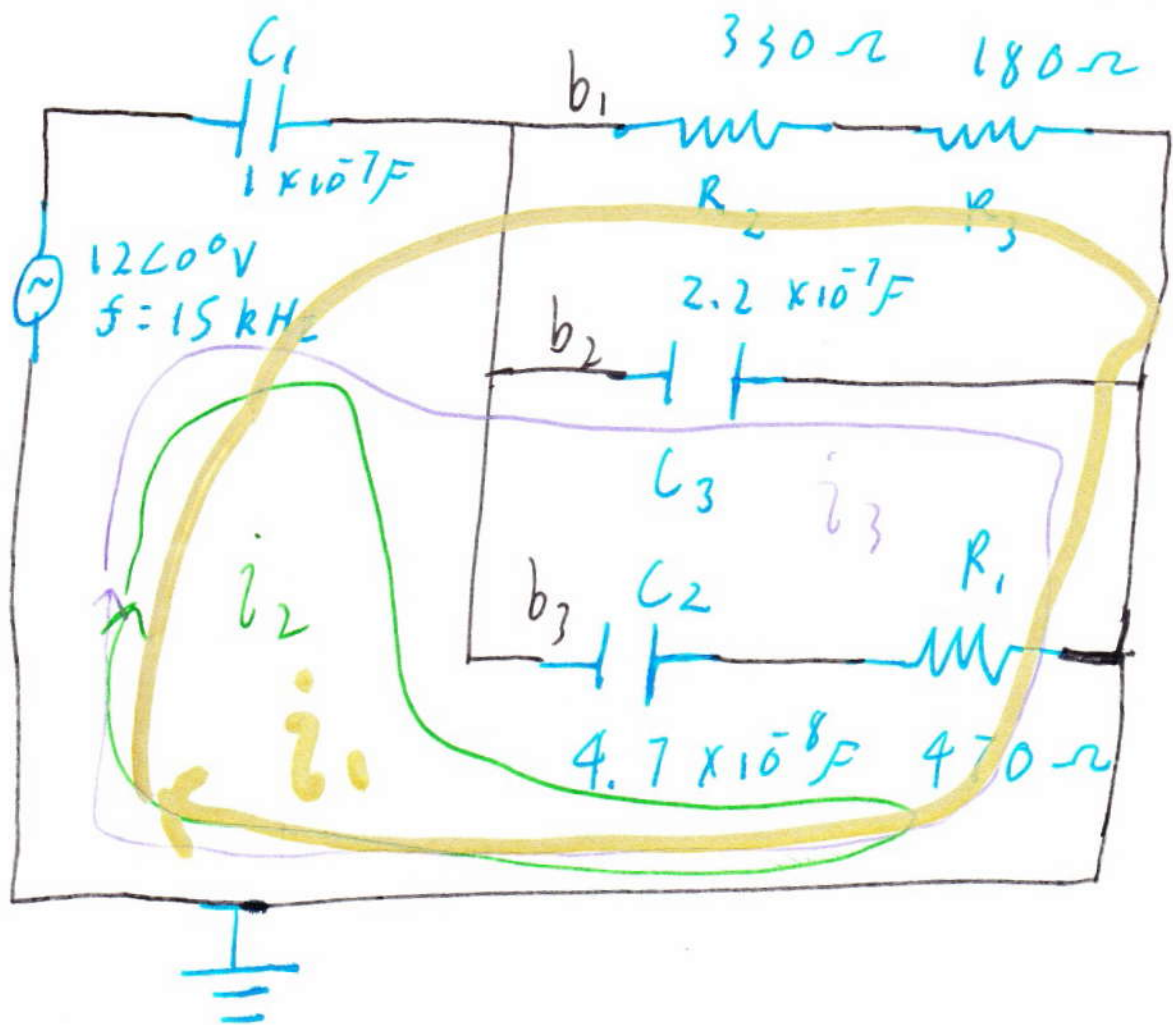 C₁
330 Ω 180 Ω
b₁
1 × 10⁻⁷F
R₂ R₃
12∠0°V
f = 15 kHz
2.2 × 10⁻⁷F
b₂
C₃
i₃
i₂
b₃ C₂ R₁
i₁
4.7 × 10⁻⁸F 470 Ω